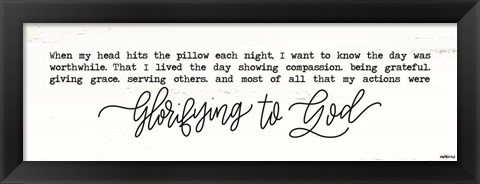 When my head hits the pillow each night, I want to know the day was
worthwhile. That I lived the day showing compassion, being grateful,
giving grace, serving others, and most of all that my actions were
Glorifying to God